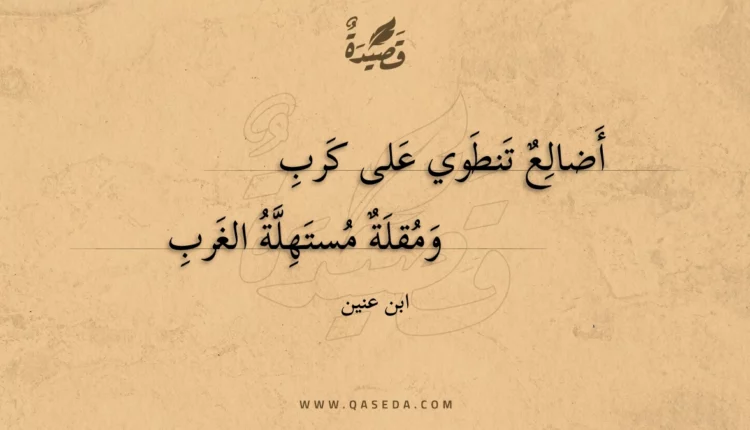 قَصِيدَةٌ
أَضالِعٌ تَنطَوي عَلى كَربِ
وَمُقلَةٌ مُستَهِلَّةُ الغَربِ
ابن عنين
WWW.QASEDA.COM